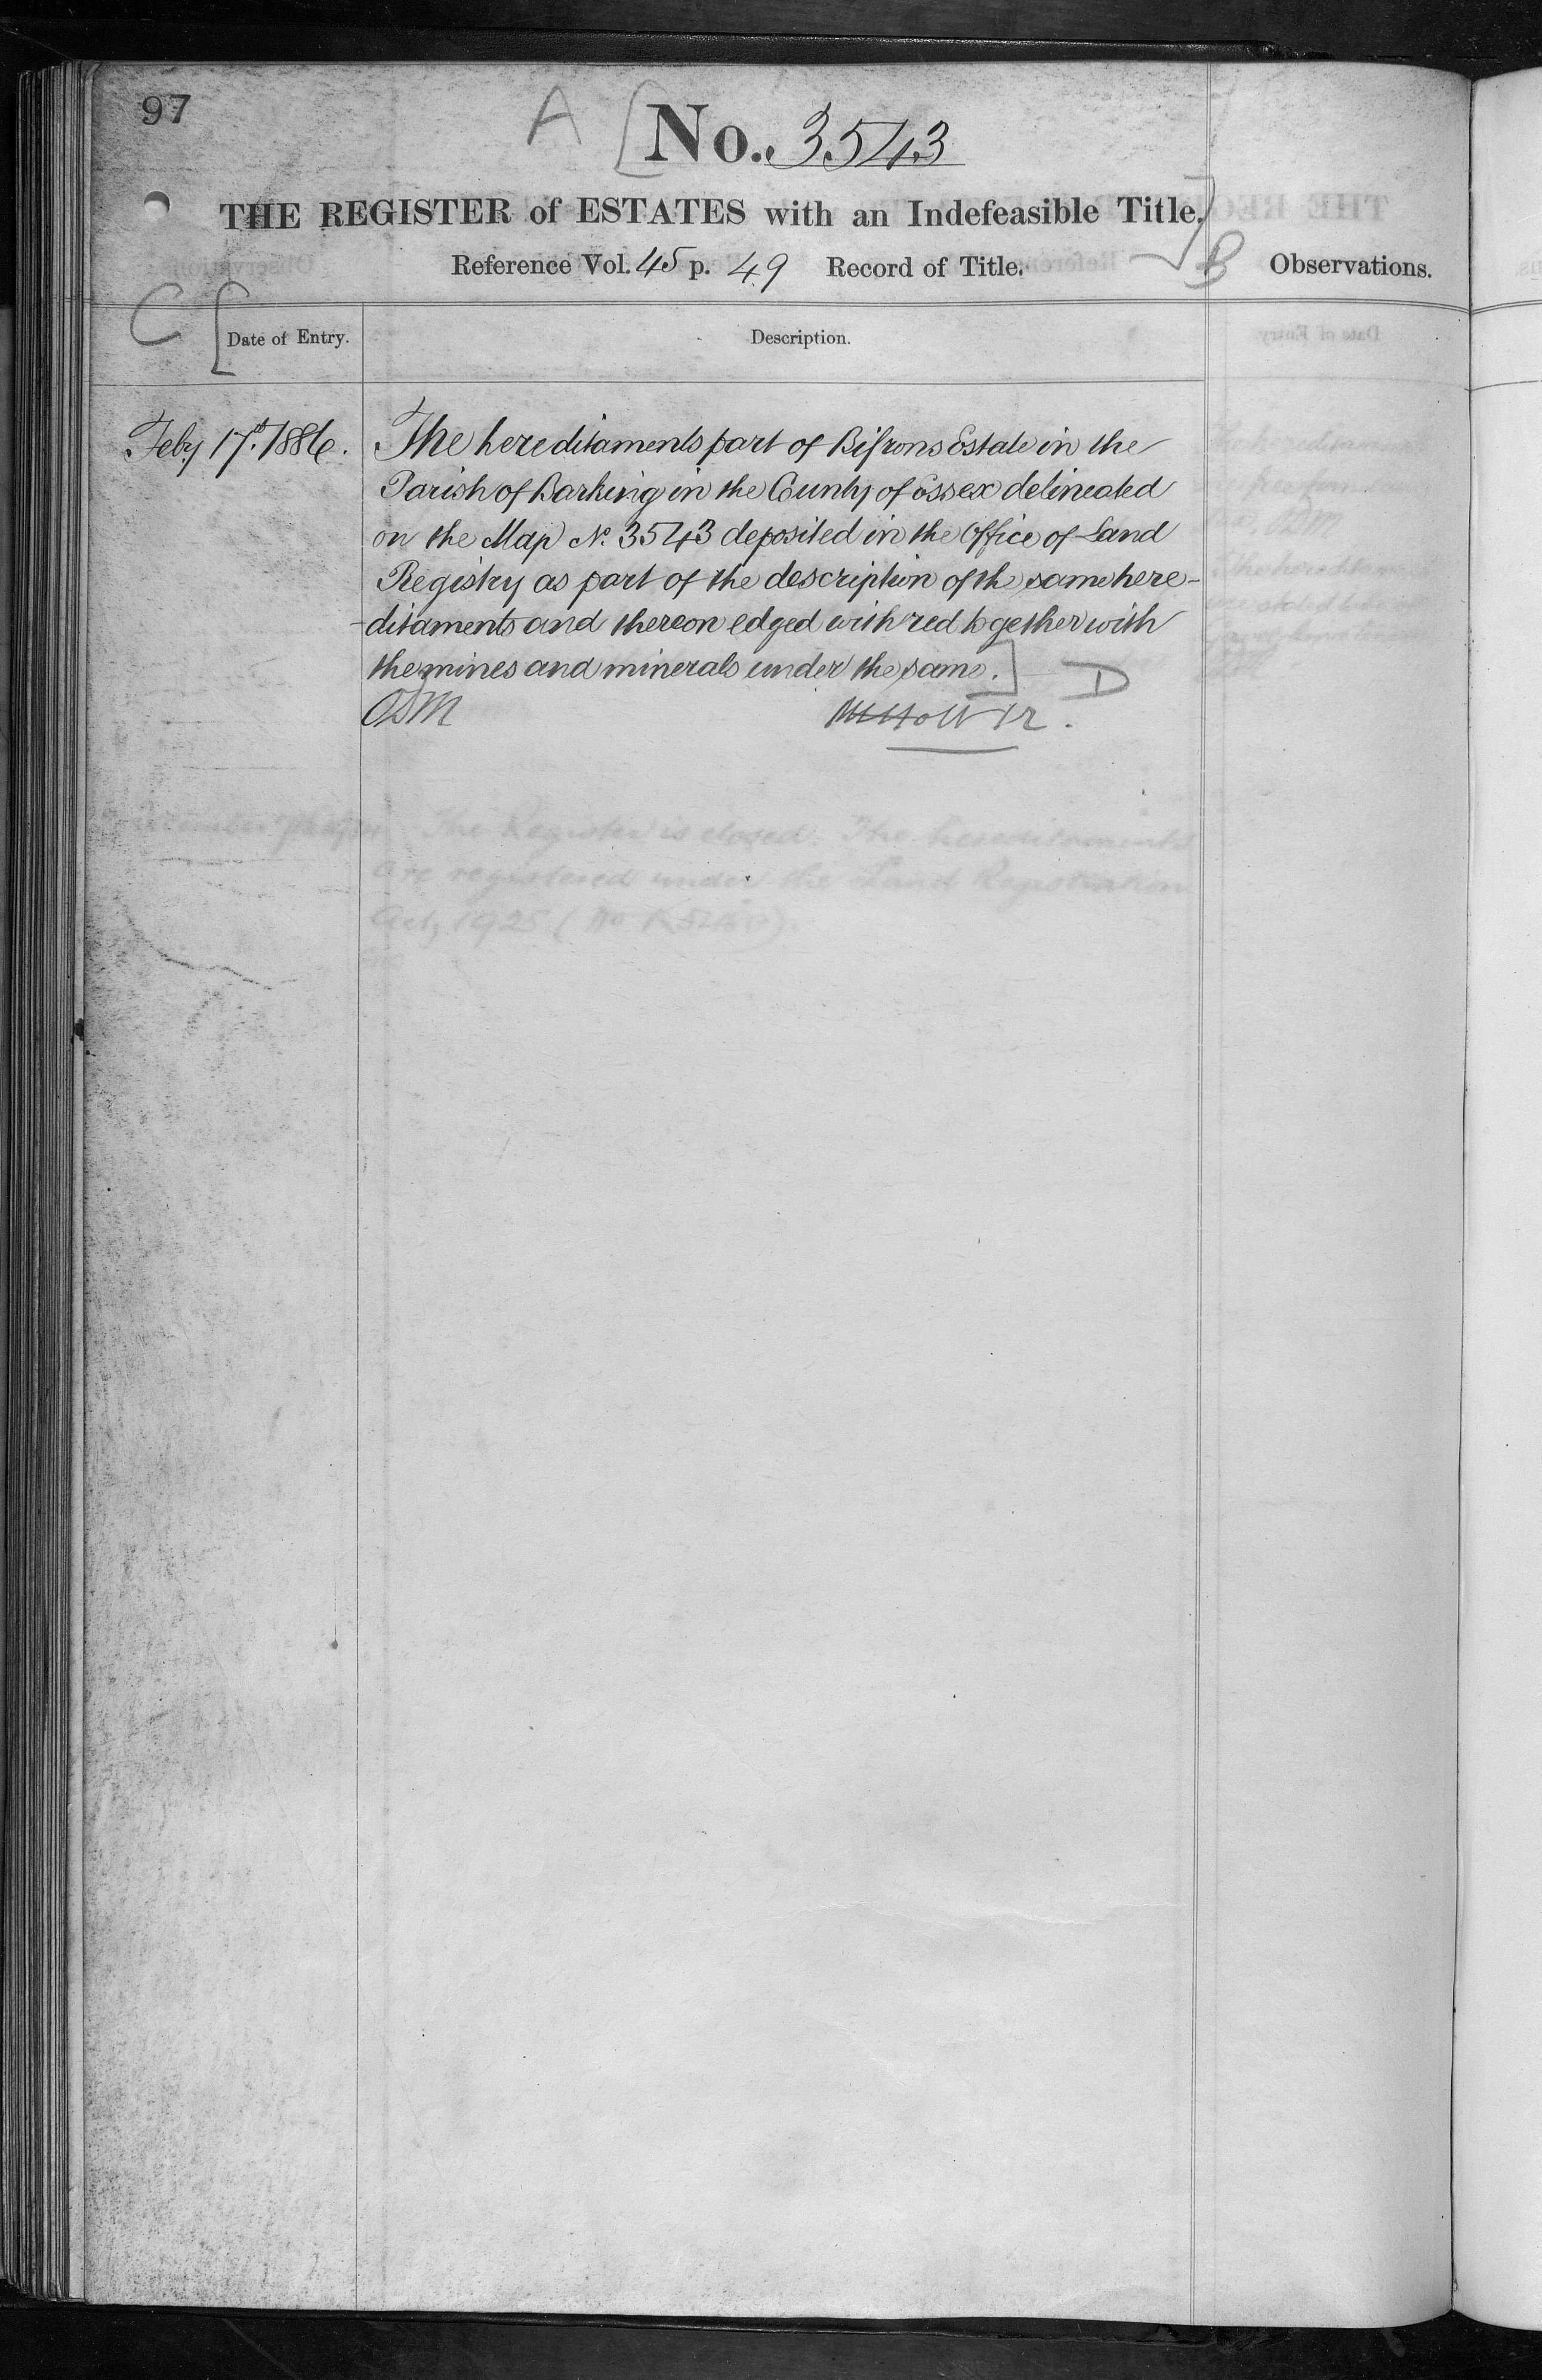 97
A [No. 3543
THE REGISTER of ESTATES with an Indefeasible Title.]
Reference Vol. 45 p. 49 Record of Title. B Observations.
C [Date of Entry. Description.
Feby 17th 1886. The hereditaments part of Bifrons Estate in the
Parish of Barking in the County of Essex delineated
on the Map No. 3543 deposited in the Office of Land
Registry as part of the description of the same here-
-ditaments and thereon edged with red together with
the mines and minerals under the same.] D
The Register is closed. The hereditaments
are registered under the Land Registration
Act, 1925. (No